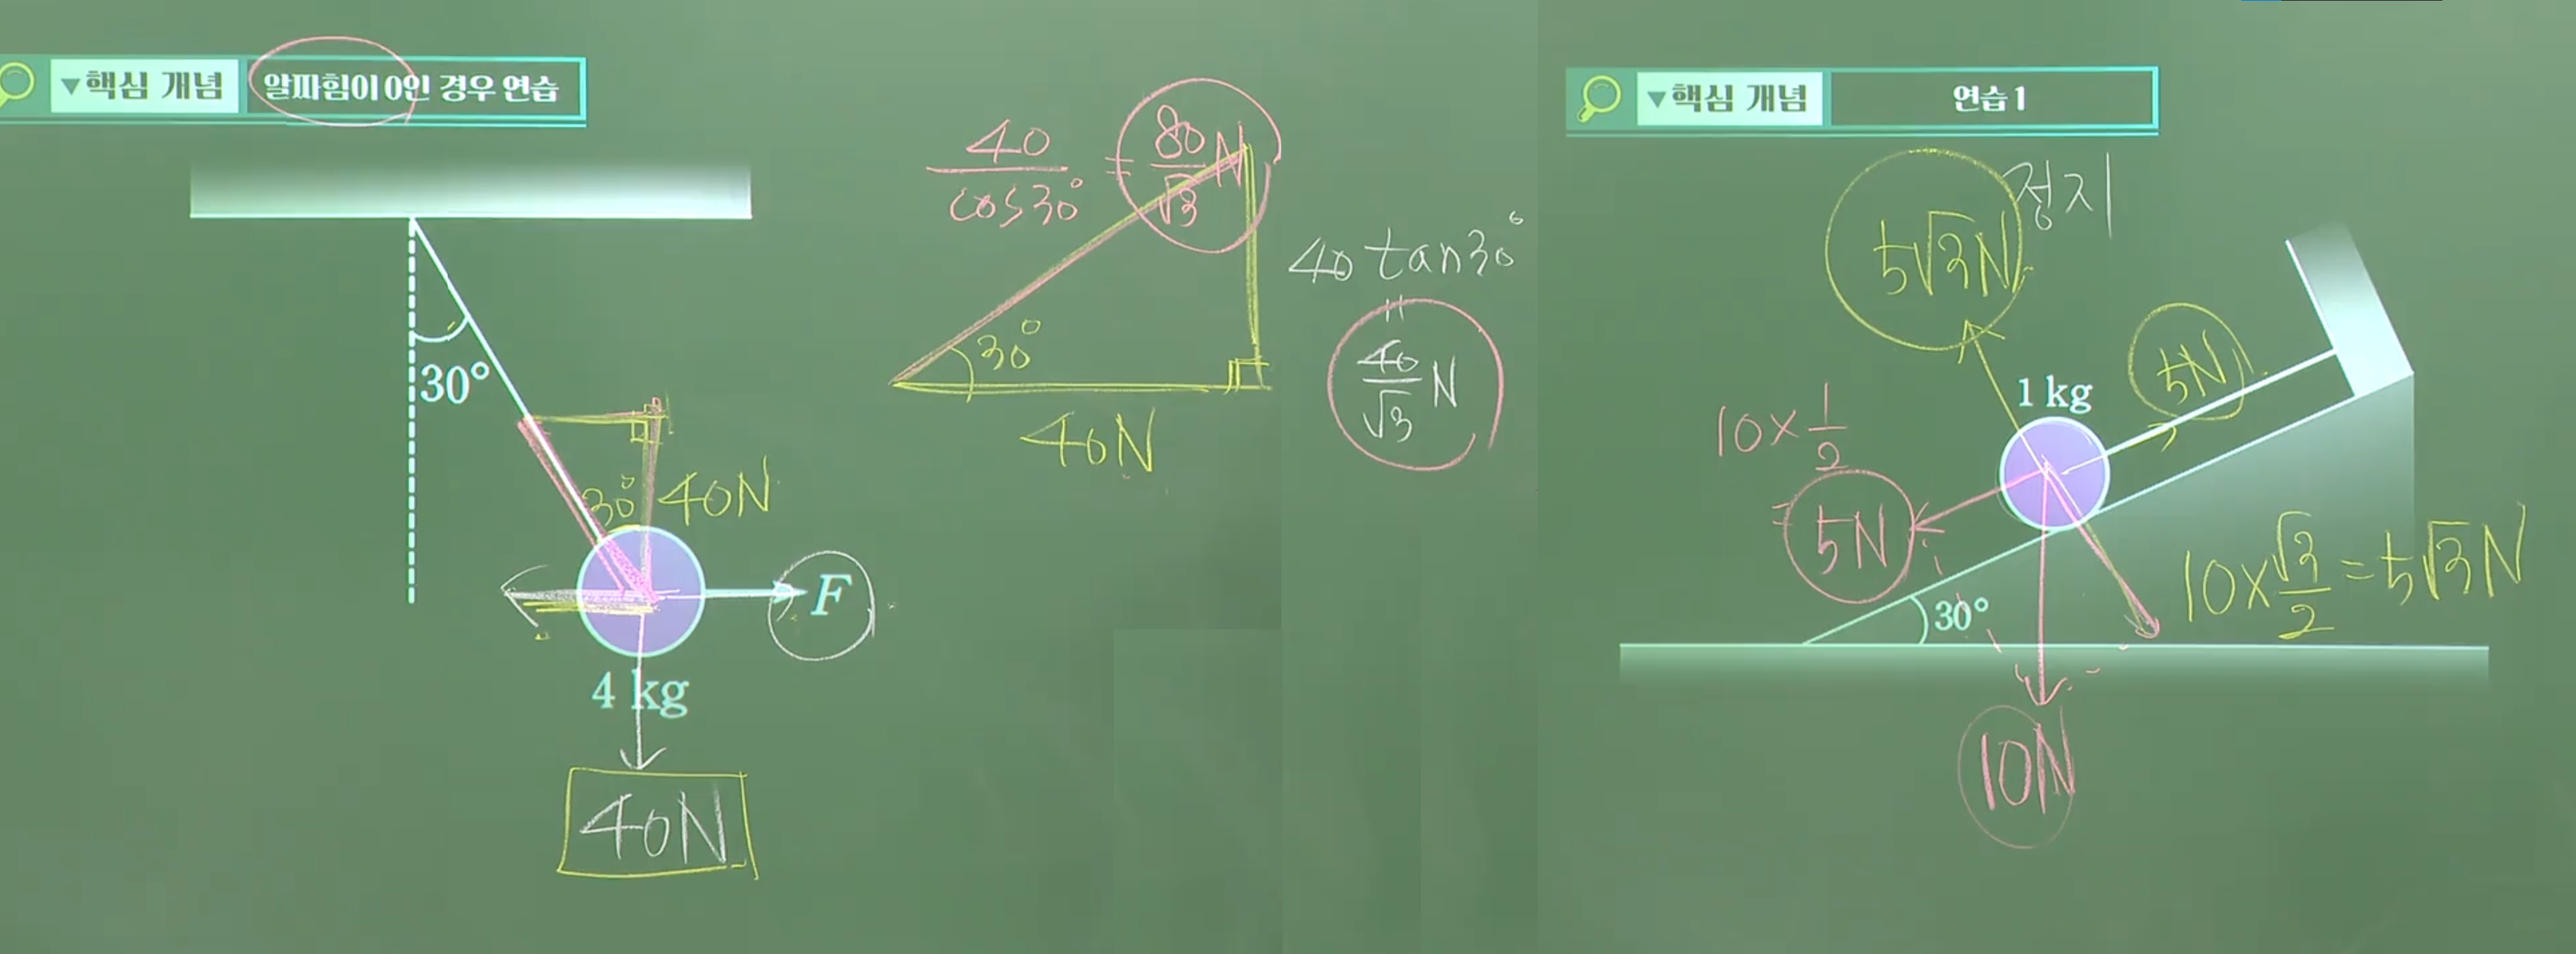 ▼핵심 개념
알짜힘이 0인 경우 연습
30°
30°
40N
F
4 kg
40N
40/cos30° = 80/√3 N
30°
40N
40 tan30°
=
40/√3 N
▼핵심 개념
연습 1
정지
5√3N
5N
1 kg
10×1/2
=5N
10×√3/2=5√3N
30°
10N